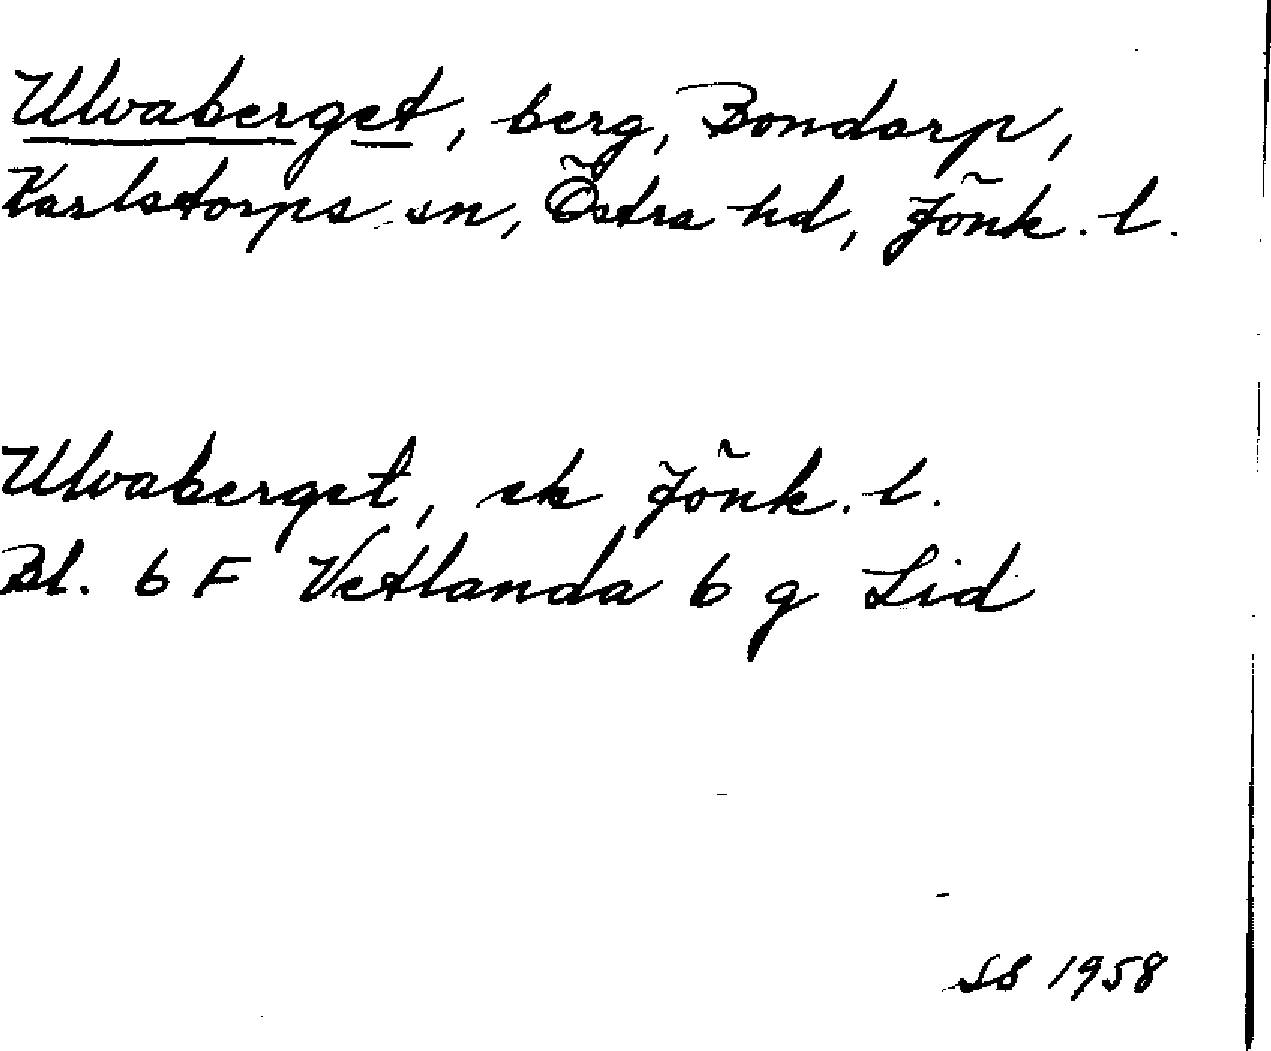 Ulvaberget, berg, Bondarp,
Karlstorps sn, Östra hd, Jönk. l.
Ulvaberget, ek Jönk. l.
Bl. 6 F Vetlanda 6 g Lid
SS 1958